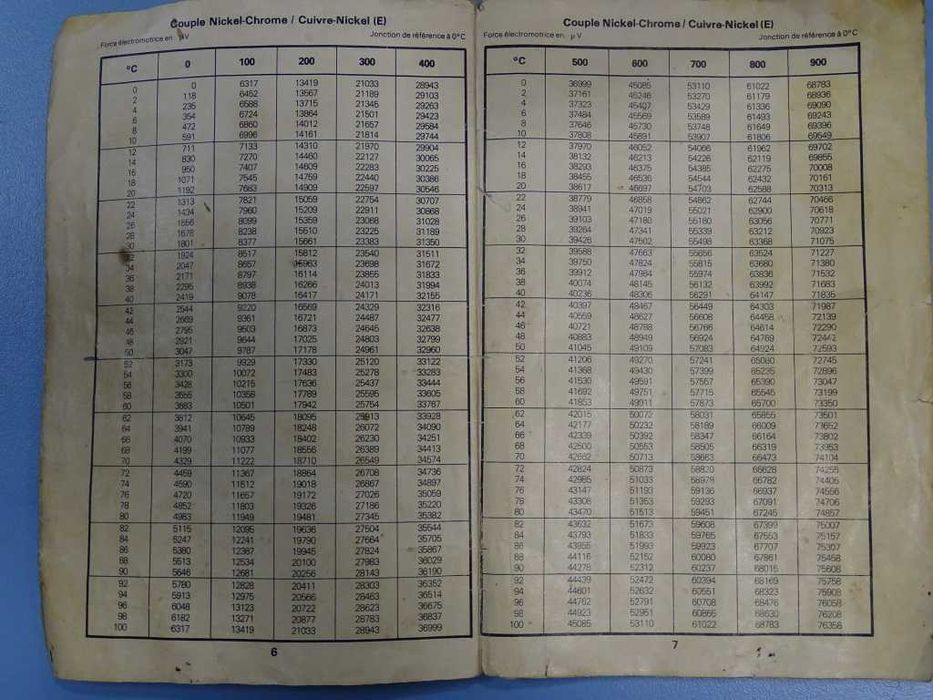 Couple Nickel-Chrome / Cuivre-Nickel (E)
Force électromotrice en μV Jonction de référence à 0°C
°C 0 100 200 300 400
0 0 6317 13419 21033 28943
2 118 6452 13567 21189 29103
4 235 6588 13715 21345 29263
6 354 6724 13864 21501 29423
8 472 6860 14012 21657 29584
10 591 6996 14161 21814 29744
12 711 7133 14310 21970 29904
14 830 7270 14460 22127 30065
16 950 7407 14609 22283 30225
18 1071 7545 14759 22440 30386
20 1192 7683 14909 22597 30546
22 1313 7821 15059 22754 30707
24 1434 7960 15209 22911 30868
26 1556 8099 15359 23068 31028
28 1678 8238 15510 23225 31189
30 1801 8377 15661 23383 31350
32 1924 8517 15812 23540 31511
34 2047 8657 15963 23698 31672
36 2171 8797 16114 23855 31833
38 2295 8938 16266 24013 31994
40 2419 9078 16417 24171 32155
42 2544 9220 16569 24329 32316
44 2669 9361 16721 24487 32477
46 2795 9503 16873 24645 32638
48 2921 9644 17025 24803 32799
50 3047 9787 17178 24961 32960
52 3173 9929 17330 25120 33122
54 3300 10072 17483 25278 33283
56 3428 10215 17636 25437 33444
58 3555 10358 17789 25595 33605
60 3683 10501 17942 25754 33767
62 3812 10645 18095 25913 33928
64 3941 10789 18248 26072 34090
66 4070 10933 18402 26230 34251
68 4199 11077 18556 26389 34413
70 4329 11222 18710 26549 34574
72 4459 11367 18864 26708 34736
74 4590 11512 19018 26867 34897
76 4720 11657 19172 27026 35059
78 4852 11803 19326 27186 35220
80 4983 11949 19481 27345 35382
82 5115 12095 19636 27504 35544
84 5247 12241 19790 27664 35705
86 5380 12387 19945 27824 35867
88 5513 12534 20100 27983 36029
90 5646 12681 20256 28143 36190
92 5780 12828 20411 28303 36352
94 5913 12975 20566 28463 36514
96 6048 13123 20722 28623 36675
98 6182 13271 20877 28783 36837
100 6317 13419 21033 28943 36999
6
Couple Nickel-Chrome / Cuivre-Nickel (E)
Force électromotrice en μV Jonction de référence à 0°C
°C 500 600 700 800 900
0 36999 45085 53110 61022 68783
2 37161 45246 53270 61179 68936
4 37323 45407 53429 61336 69090
6 37484 45569 53589 61493 69243
8 37646 45730 53748 61649 69396
10 37808 45891 53907 61806 69549
12 37970 46052 54066 61962 69702
14 38132 46213 54226 62119 69855
16 38293 46375 54385 62275 70008
18 38455 46536 54544 62432 70161
20 38617 46697 54703 62588 70313
22 38779 46858 54862 62744 70466
24 38941 47019 55021 62900 70618
26 39103 47180 55180 63056 70771
28 39264 47341 55339 63212 70923
30 39426 47502 55498 63368 71075
32 39588 47663 55656 63524 71227
34 39750 47824 55815 63680 71380
36 39912 47984 55974 63836 71532
38 40074 48145 56132 63992 71683
40 40236 48306 56291 64147 71835
42 40397 48467 56449 64303 71987
44 40559 48627 56608 64458 72139
46 40721 48788 56766 64614 72290
48 40883 48949 56924 64769 72442
50 41045 49109 57083 64924 72593
52 41206 49270 57241 65080 72745
54 41368 49430 57399 65235 72896
56 41530 49591 57557 65390 73047
58 41692 49751 57715 65545 73199
60 41853 49911 57873 65700 73350
62 42015 50072 58031 65855 73501
64 42177 50232 58189 66009 73652
66 42339 50392 58347 66164 73802
68 42500 50553 58505 66319 73953
70 42662 50713 58663 66473 74104
72 42824 50873 58820 66628 74255
74 42985 51033 58978 66782 74405
76 43147 51193 59136 66937 74556
78 43308 51353 59293 67091 74706
80 43470 51513 59451 67245 74857
82 43632 51673 59608 67399 75007
84 43793 51833 59765 67553 75157
86 43955 51993 59923 67707 75307
88 44116 52152 60080 67861 75458
90 44278 52312 60237 68015 75608
92 44439 52472 60394 68169 75758
94 44601 52632 60551 68323 75908
96 44762 52791 60708 68476 76058
98 44923 52951 60865 68630 76208
100 45085 53110 61022 68783 76358
7